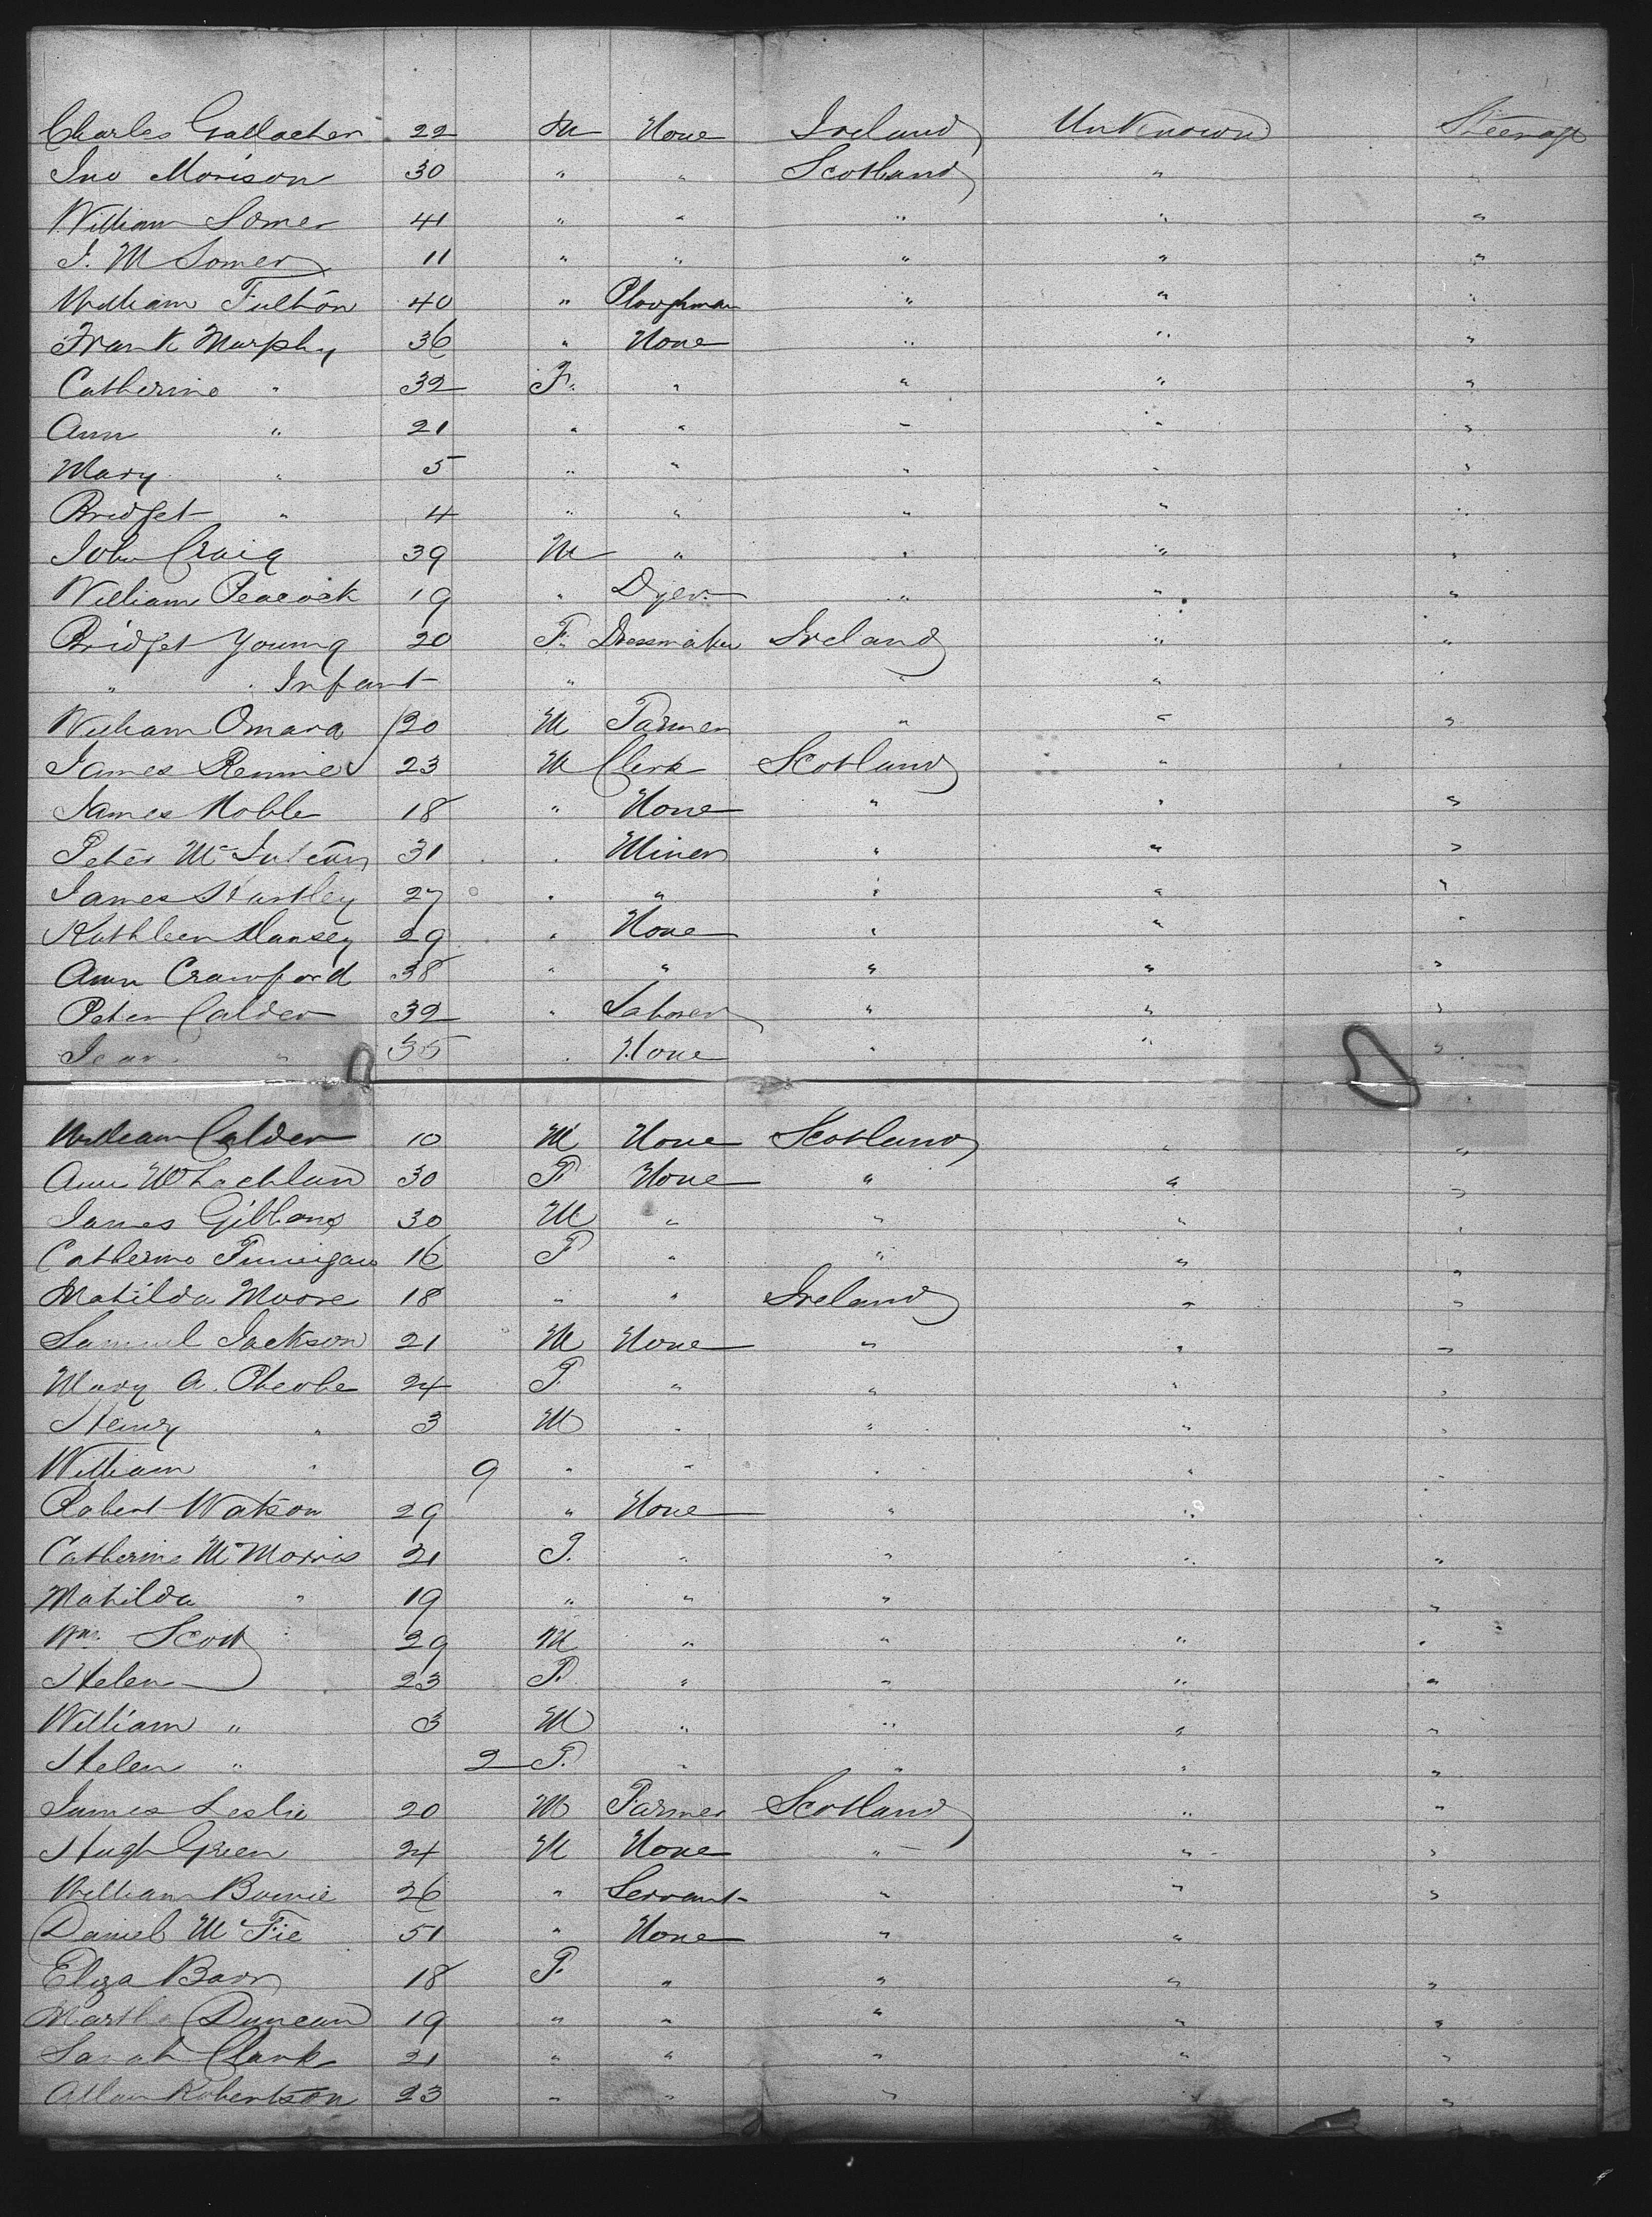 Charles Gallacher 22 M None Ireland UnKnown Steerage
Jno Morison 30 " " Scotland "
William Somer 41 " " " " "
J. M Somer 11 " " " " "
William Fulton 40 " Ploughman " " "
Frank Murphy 36 " None " " "
Catherine " 32 F. " " " "
Ann " 21 " " " " "
Mary " 5 " " " " "
Bridget " 4 " " " " "
John Craig 39 M " " " "
William Peacock 19 " Dyer " " "
Bridget Young 20 F. Dressmaker Ireland " "
" " Infant " " " "
William Omara 20 M Farmer " " "
James Rennie 23 M Clerk Scotland "
James Noble 18 " None " " "
Peter Mc 31 " Miner " " "
James Hartley 27 " " " " "
Kathleen 29 " None " " "
Ann Crawford 38 " " " " "
Peter Calder 32 " Laborer " " "
Jean " 35 " None " " "
William Calder 10 M None Scotland " "
Ann McLachlan 30 F None " " "
James Gibbons 30 M " " " "
Catherine Finnigan 16 F " " " "
Matilda Moore 18 " " Ireland " "
Samuel Jackson 21 M None " " "
Mary A. 24 F. " " " "
Henry " 3 M " " " "
William " 9 " " " " "
Robert Watson 29 " None " " "
Catherine McMorris 21 F. " " " "
Matilda " 19 " " " "
Wm. Scott 29 M " " " "
Helen 23 F. " " " "
William " 3 M " " " "
Helen " 2 F. " " " "
James Leslie 20 M Farmer Scotland " "
Hugh Green 24 M None " " "
William 26 " Servant " " "
Daniel McFie 51 " None " "
Eliza Barr 18 F. " " " "
Martha Duncan 19 " " " " "
Sarah Clark 21 " " " " "
Allan Robertson 23 " " " "